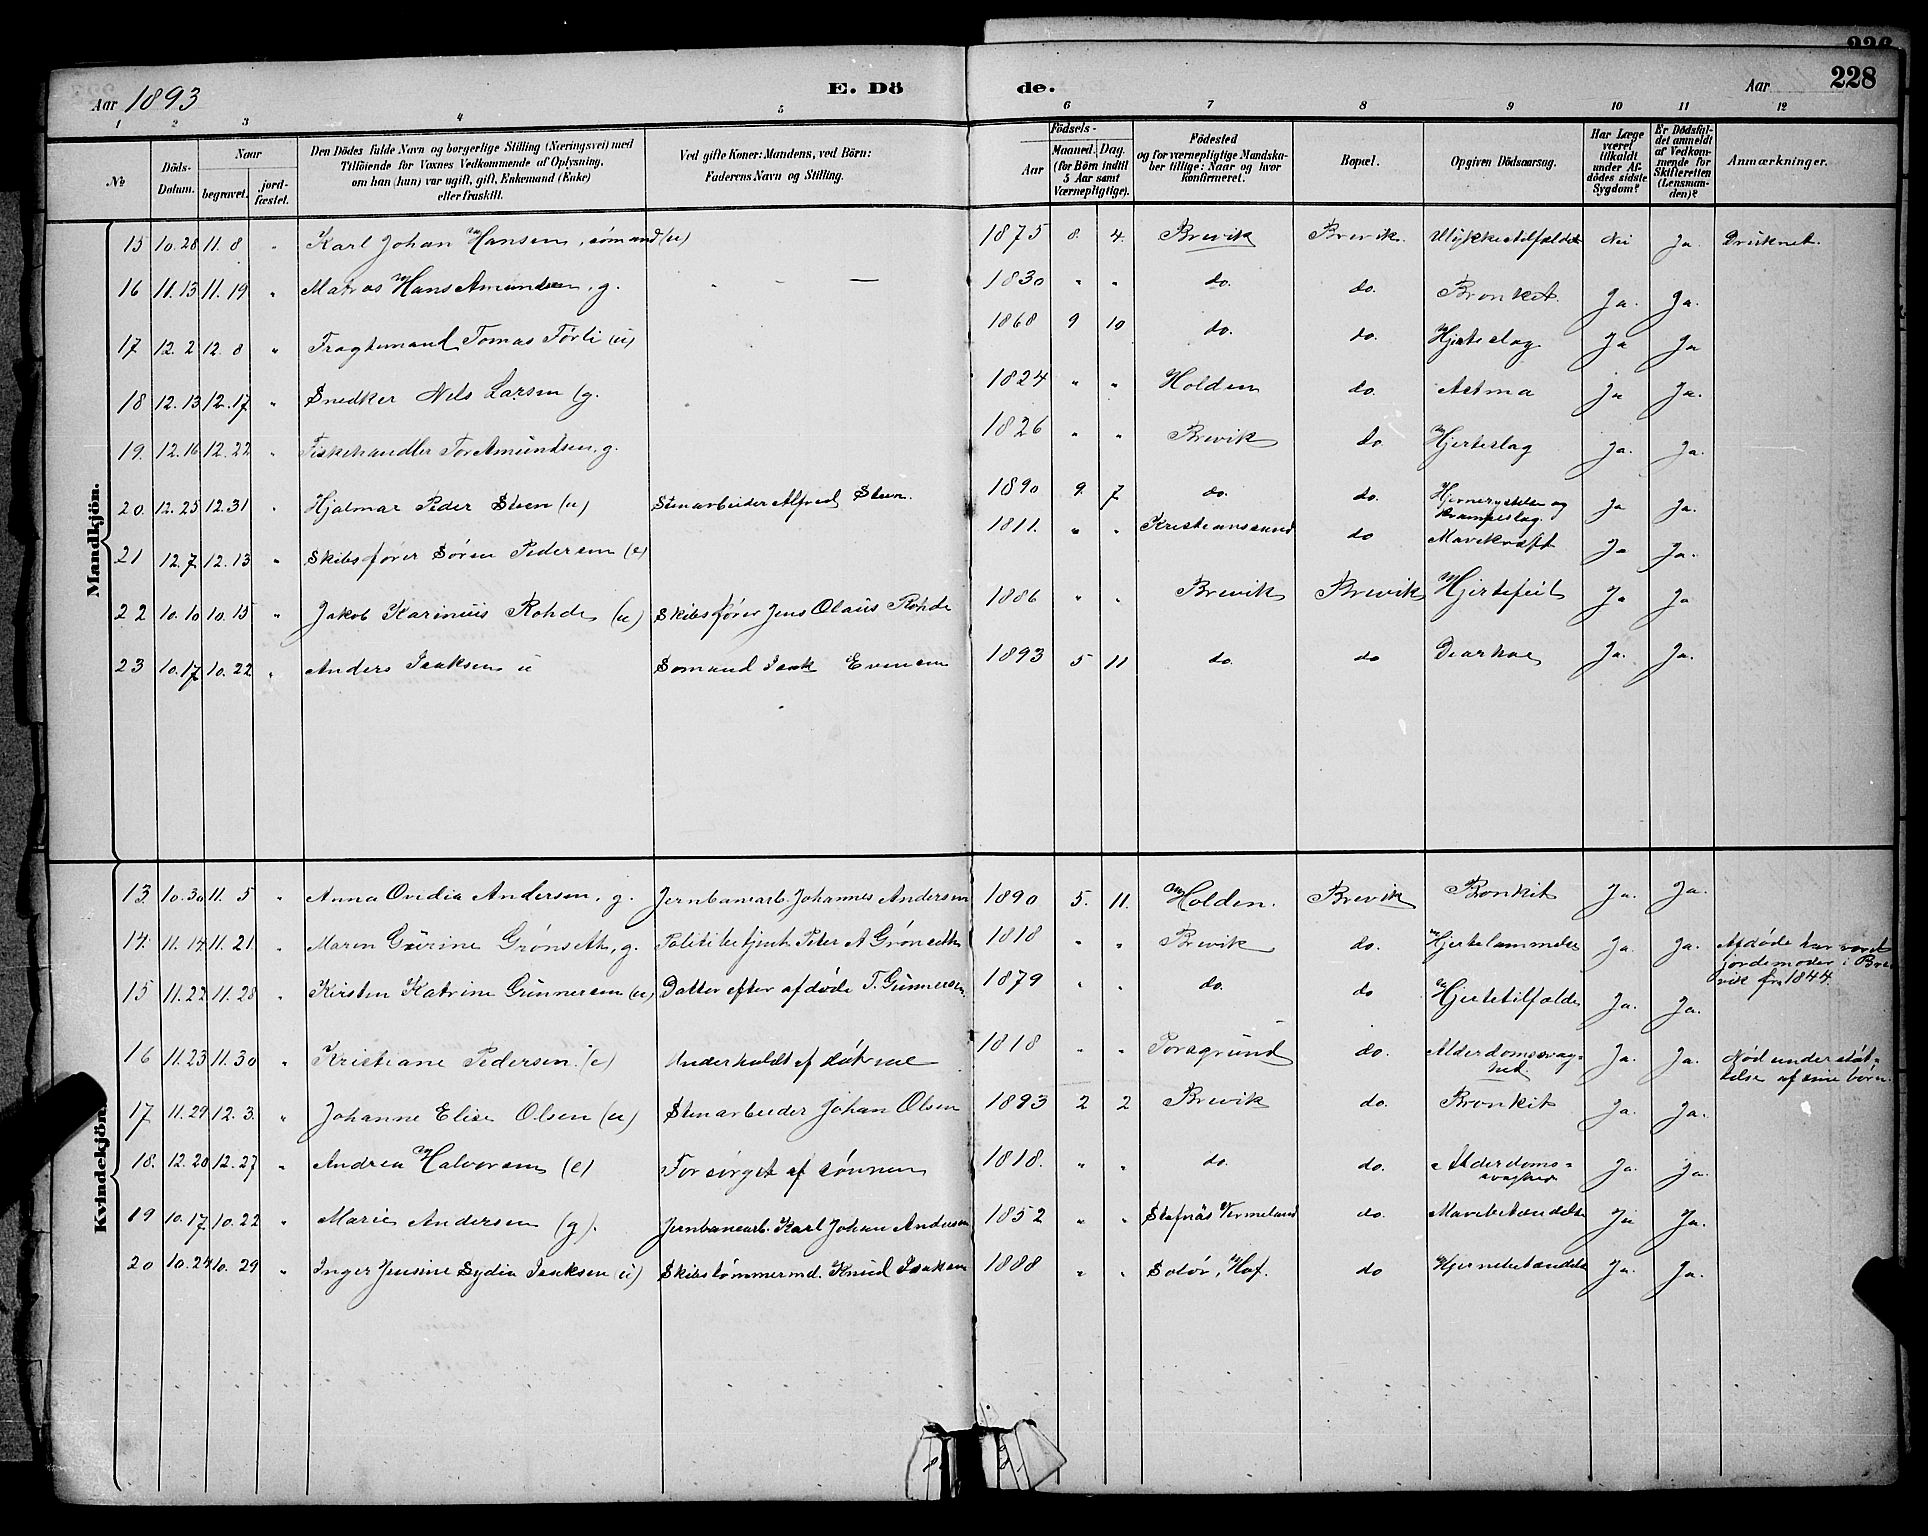 Aar 1893 E. Dö de. Aar 228
1 2 3 4 5 6 7 8 9 10 11 12
№ Döds-Datum. Naar begravet. jord-fæstet. Den Dödes fulde Navn og borgerlige Stilling (Næringsvei) med Tilföiende for Voxnes Vedkommende af Oplysning, om han (hun) var ugift, gift, Enkemand (Enke) eller fraskilt. Ved gifte Koner: Mandens, ved Börn: Faderens Navn og Stilling. Födsels- Aar Maaned. Dag. (for Börn indtil 5 Aar samt Værnepligtige). Födested og for værnepligtige Mandskaber tillige: Naar og hvor konfirmeret. Bopæl. Opgiven Dödsaarsag. Har Læge været tilkaldt under Afdödes sidste Sygdom? Er Dödsfaldet anmeldt af Vedkommende for Skifteretten (Lensmanden)? Anmærkninger.
Mandkjön.
15 10.28 11.8 " Karl Johan Hansen, sømand (u) 1875 8. 4. Brevik Brevik. Ulykkestilfælde Nei Ja. Druknet.
16 11.13 11.19 " Matros Hans Amundsen, g. 1830 " " do. do. Bronkit Ja. Ja.
17 12.2 12.8 " Fragtemand Tomas Førli (u) 1868 9 10 do. do. Hjerteslag Ja Ja
18 12.13 12.17 " Snedker Nils Larsen (g. 1824 " " Holden do. Astma Ja Ja.
19. 12.16 12.22 " Fiskehandler Tor Amundsen, g. 1826 " " Brevik do Hjerteslag Ja. Ja.
20 12.25 12.31 " Hjalmar Peder Steen (u) Stenarbeider Alfred Steen. 1890 9. 7 do. do. Hjernerystelse og Krampeslag. Ja Ja.
21 12.7 12.13 " Skibsfører Søren Pedersen (e) 1811. " " Kristianssund do Mavekræft Ja Ja.
22 10.10 10.15 " Jakob Karinius Rohde (u) Skibsfører Jens Olaus Rohde 1886 " " Brevik Brevik Hjertefeil Ja Ja
23 10.17 10.22 " Anders Isaksen u Sømand Isak Evensen 1893 5 11 do. do Diarhoe Ja. Ja.
Kvindekjön.
13. 10.30 11.5 " Anna Ovidia Andersen, g. Jernbanearb. Johannes Andersen 1890 5. 11. Holden. Brevik Bronkit Ja. Ja.
14. 11.14 11.21. " Maren Gurine Grønseth, g. Politibetjent Peter A Grønseth 1818 " " Brevik do. Hjertelammelse Ja. Ja. Afdøde har været jordemoder i Brevik fra 1844.
15 11.22 11.28 " Kirsten Katrine Gunnersen (u) Datter efter afdøde T. Gunnersen. 1879 " " do. do Hjertetilfælde Ja. Ja.
16 11.23 11.30 " Kristiane Pedersen. (e) Underholdt af døtrene 1818 " " Porsgrund do. Alderdomssvaghed. Ja. Ja. Nød understøttelse af sine børn.
17 11.29 12.3. " Johanne Elise Olsen (u) Stenarbeider Johan Olsen 1893 2 2 Brevik do. Bronkit Ja. Ja.
18. 12.20 12.27 " Andrea Halvorsen (e) Forsørget af sønnen 1818. " " do. do. Alderdoms=svaghed Ja. Ja.
19 10.17 10.22 " Marie Andersen (g). Jernbanearb. Karl Johan Andersen 1852 " " Stafnäs Vermeland do. Mavebetændelse Ja Ja.
20 10.24 10.29 " Inger Jensine Lydia Isaksen (u) Skibstømmermd. Knud Isaksen 1888 " " Solør, Hof. do Hjernebetændelse Ja. Ja.